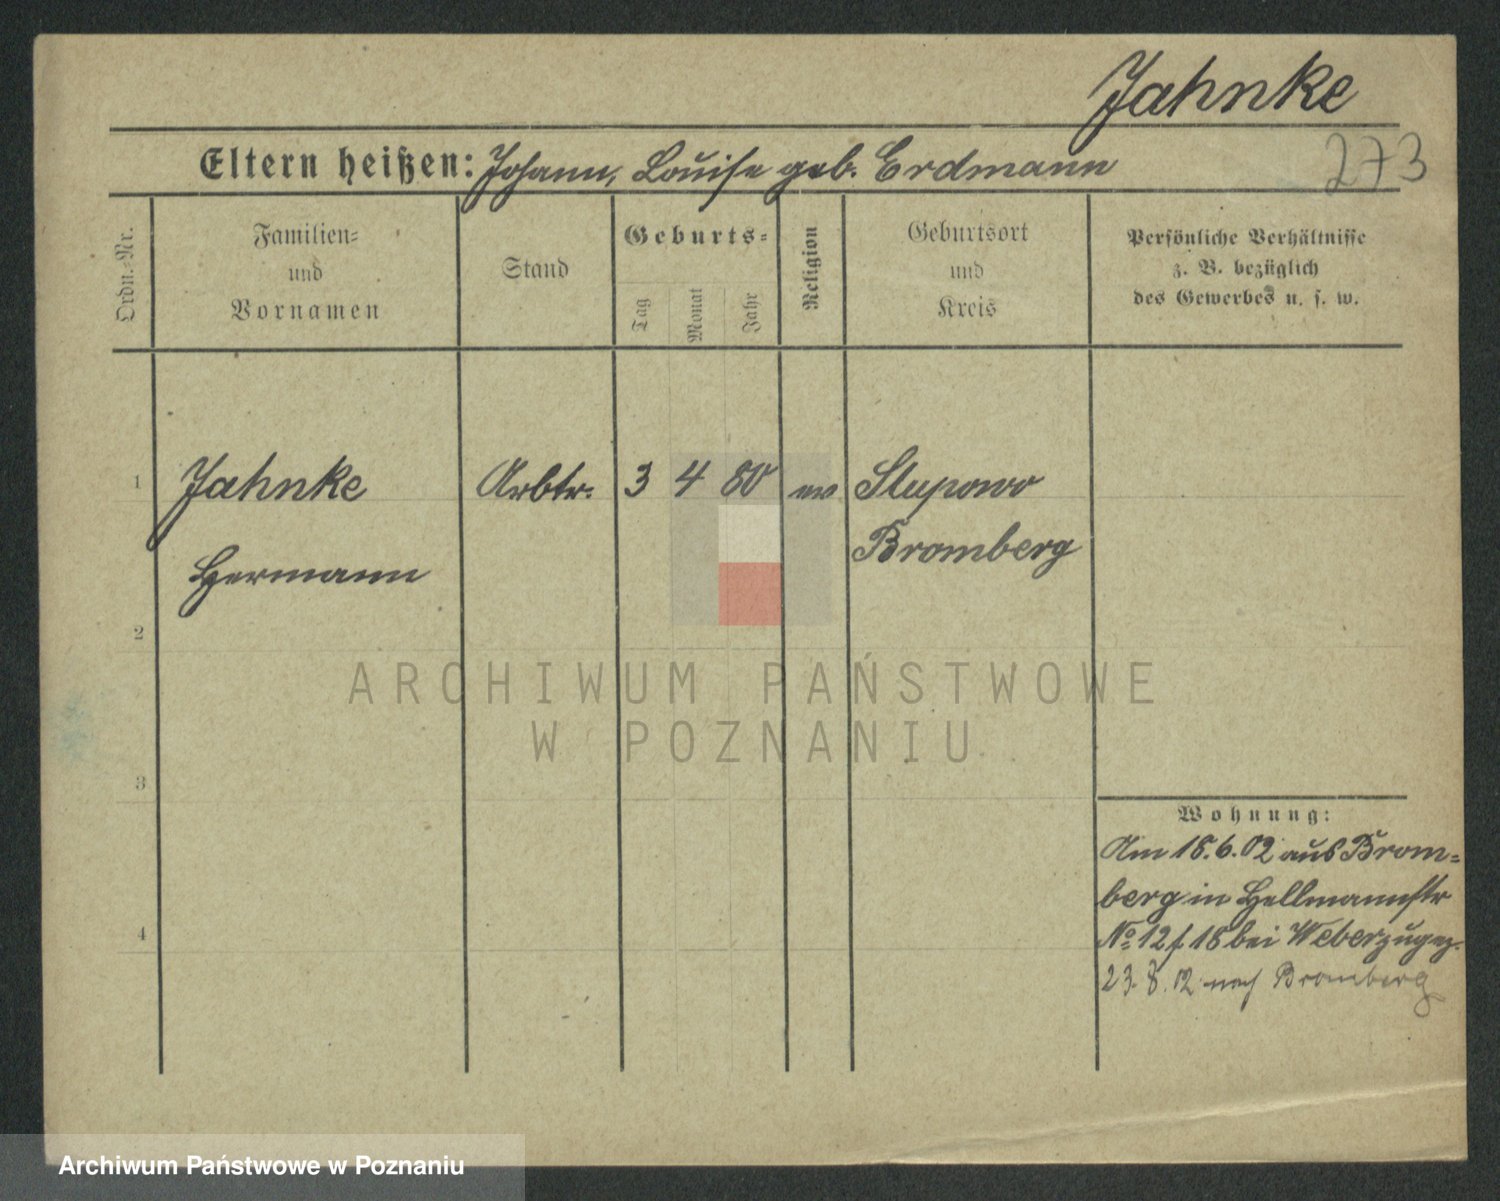 Jahnke
273
Eltern heißen: Johann, Louise geb. Erdmann
Ordn.-Nr.
Familien-
und
Vornamen
Stand
Geburts-
Tag
Monat
Jahr
Religion
Geburtsort
und
Kreis
Persönliche Verhältnisse
z. B. bezüglich
des Gewerbes u. s. w.
1 Jahnke Arbtr. 3 4 80 ev Slupowo
Bromberg
Hermann
2
ARCHIWUM PAŃSTWOWE
W POZNANIU
3
Wohnung:
Am 18.6.02 aus Brom=
berg in Hellmannstr
4
No 12 f 18 bei Weber zugez.
23.8.02 nach Bromberg
Archiwum Państwowe w Poznaniu